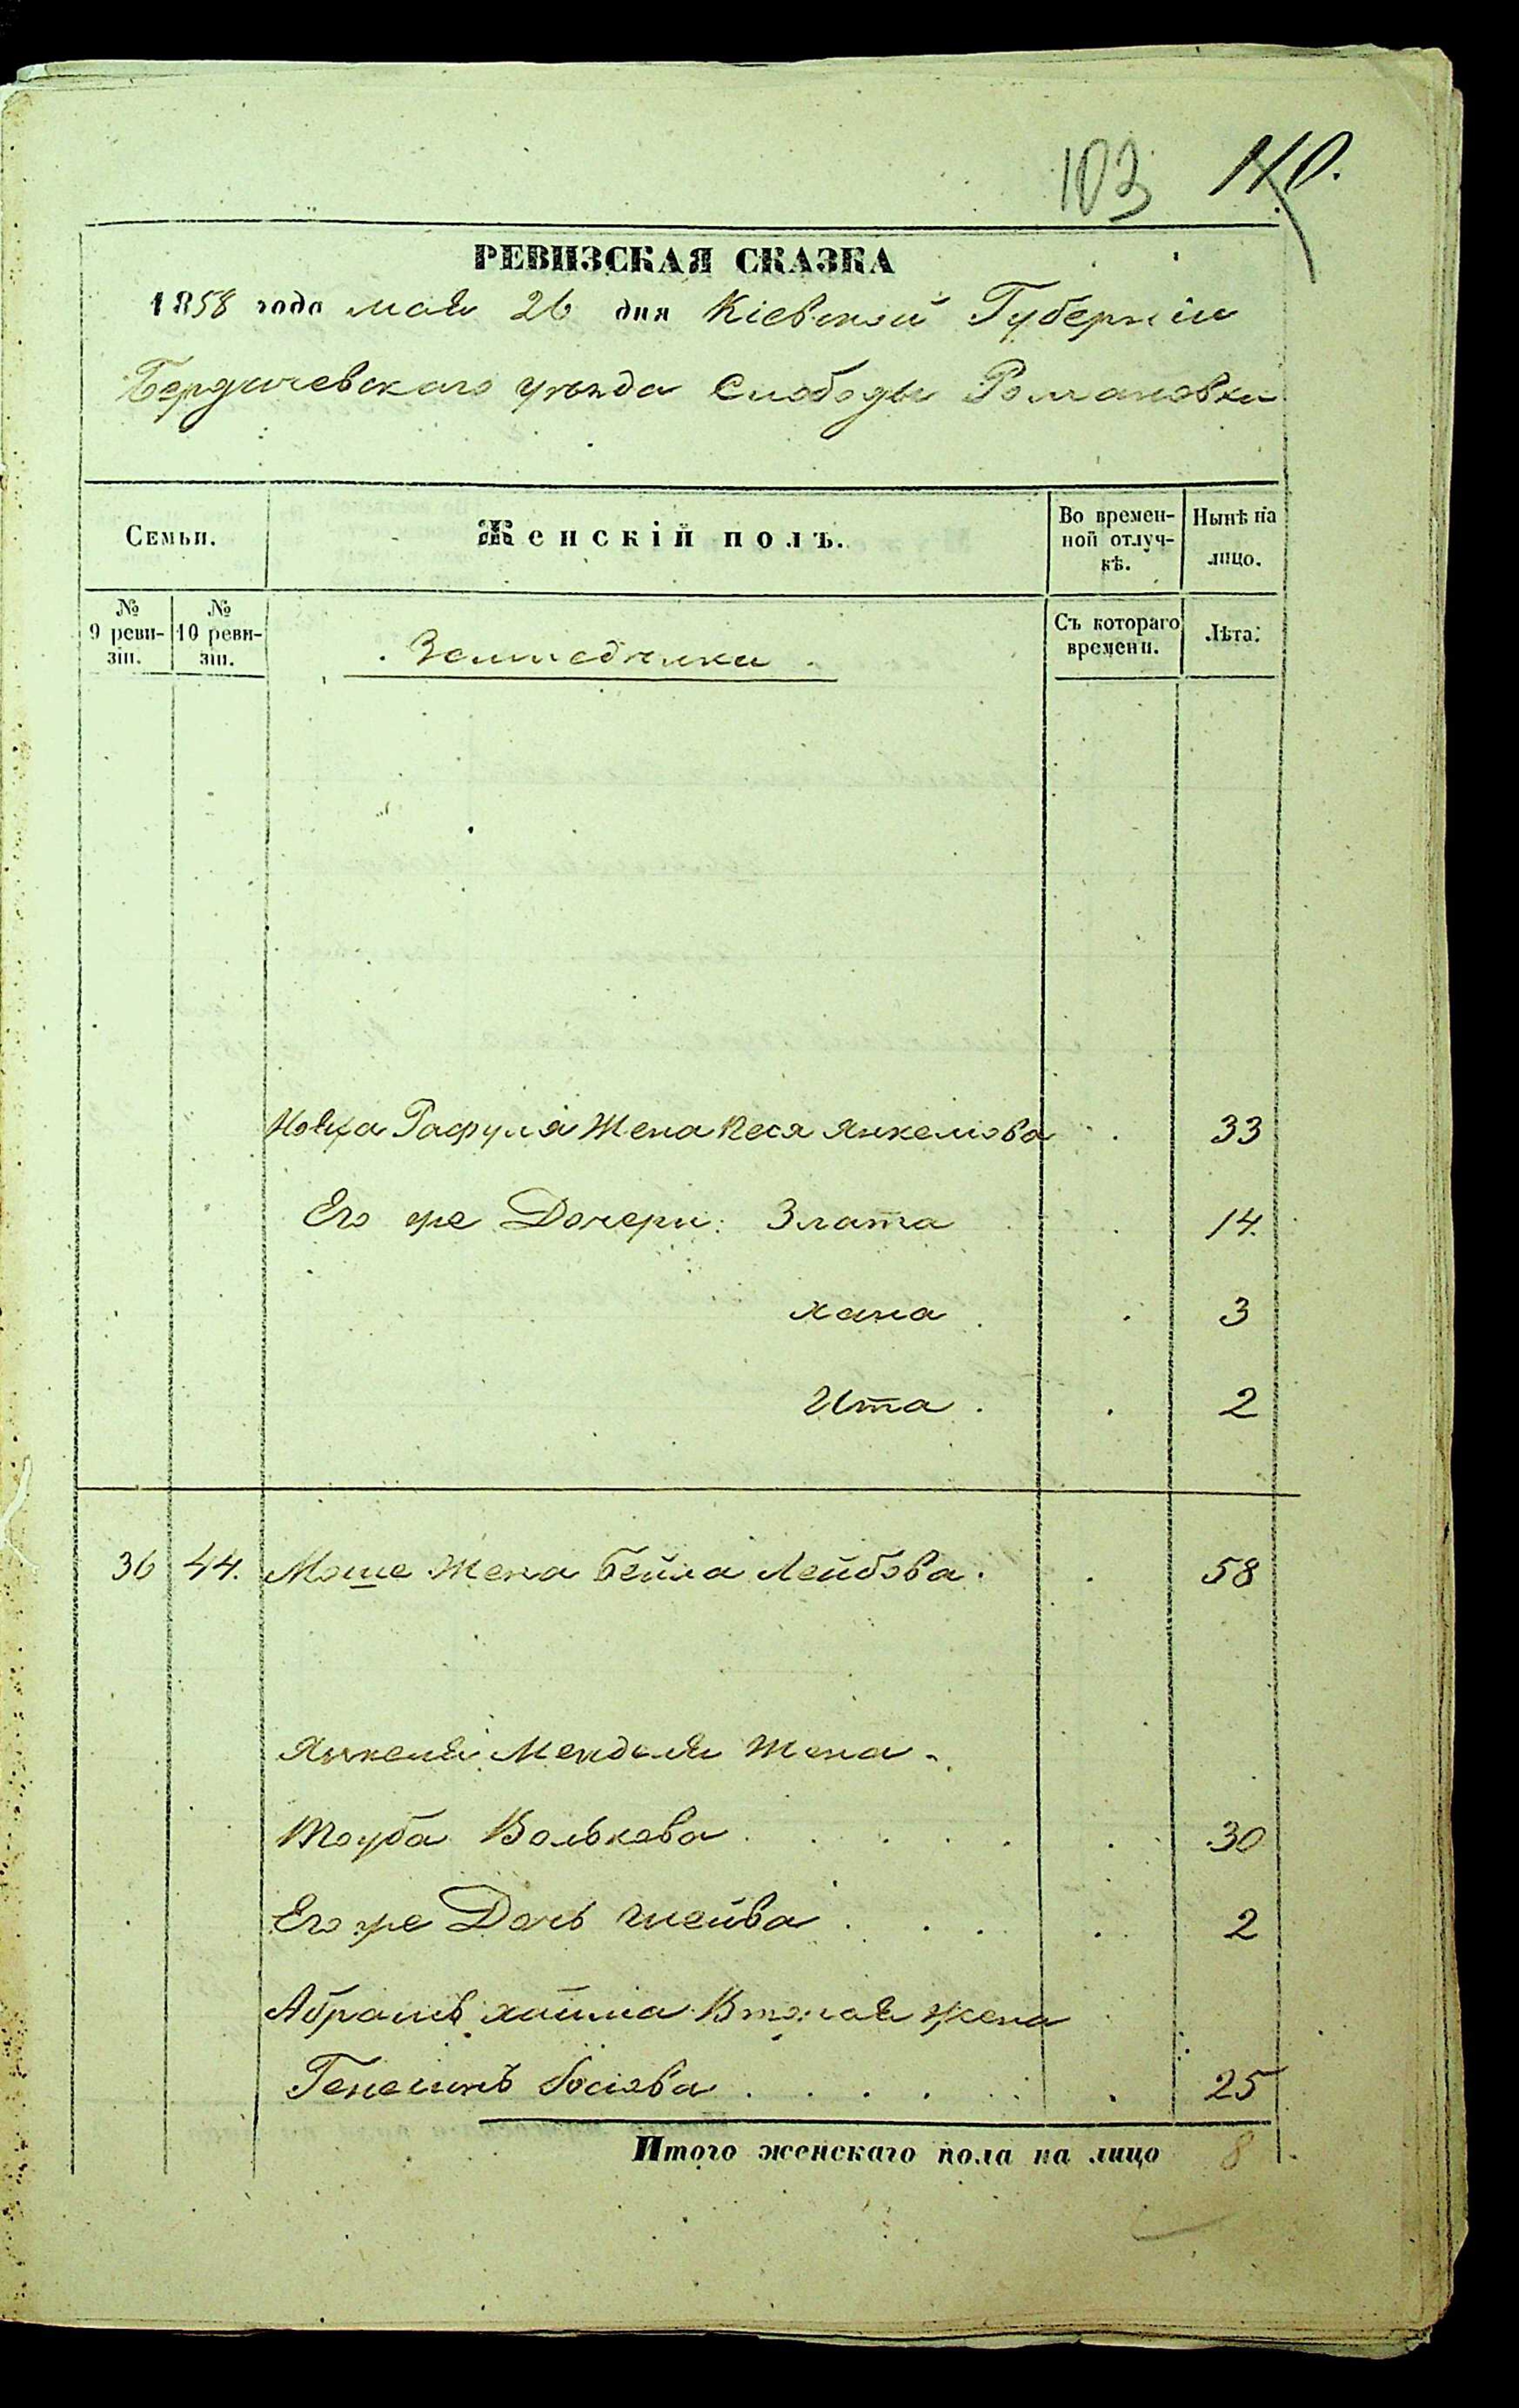 103 110.
РЕВИЗСКАЯ СКАЗКА
1858 года мая 26 дня Кіевской Губерніи
Бердичевскаго уѣзда Слободы Романовки
Семьи.
Женскій полъ.
Во времен-
ной отлуч-
кѣ.
Нынѣ на
лицо.
№
9 реви-
зіи.
№
10 реви-
зіи.
Съ котораго
времени.
Лѣта.
Рафуля Жена Песя Янкелиова 33
Его же Дочери: Злата 14.
хана 3
Ита 2
36 44. Моше Жена Бейла Лейбова 58
Янкеля Менделя жена
Тауба Волькова 30
Его же Дочь 2
Абрамъ хаима Вторая жена
25
Итого женскаго пола на лицо 8